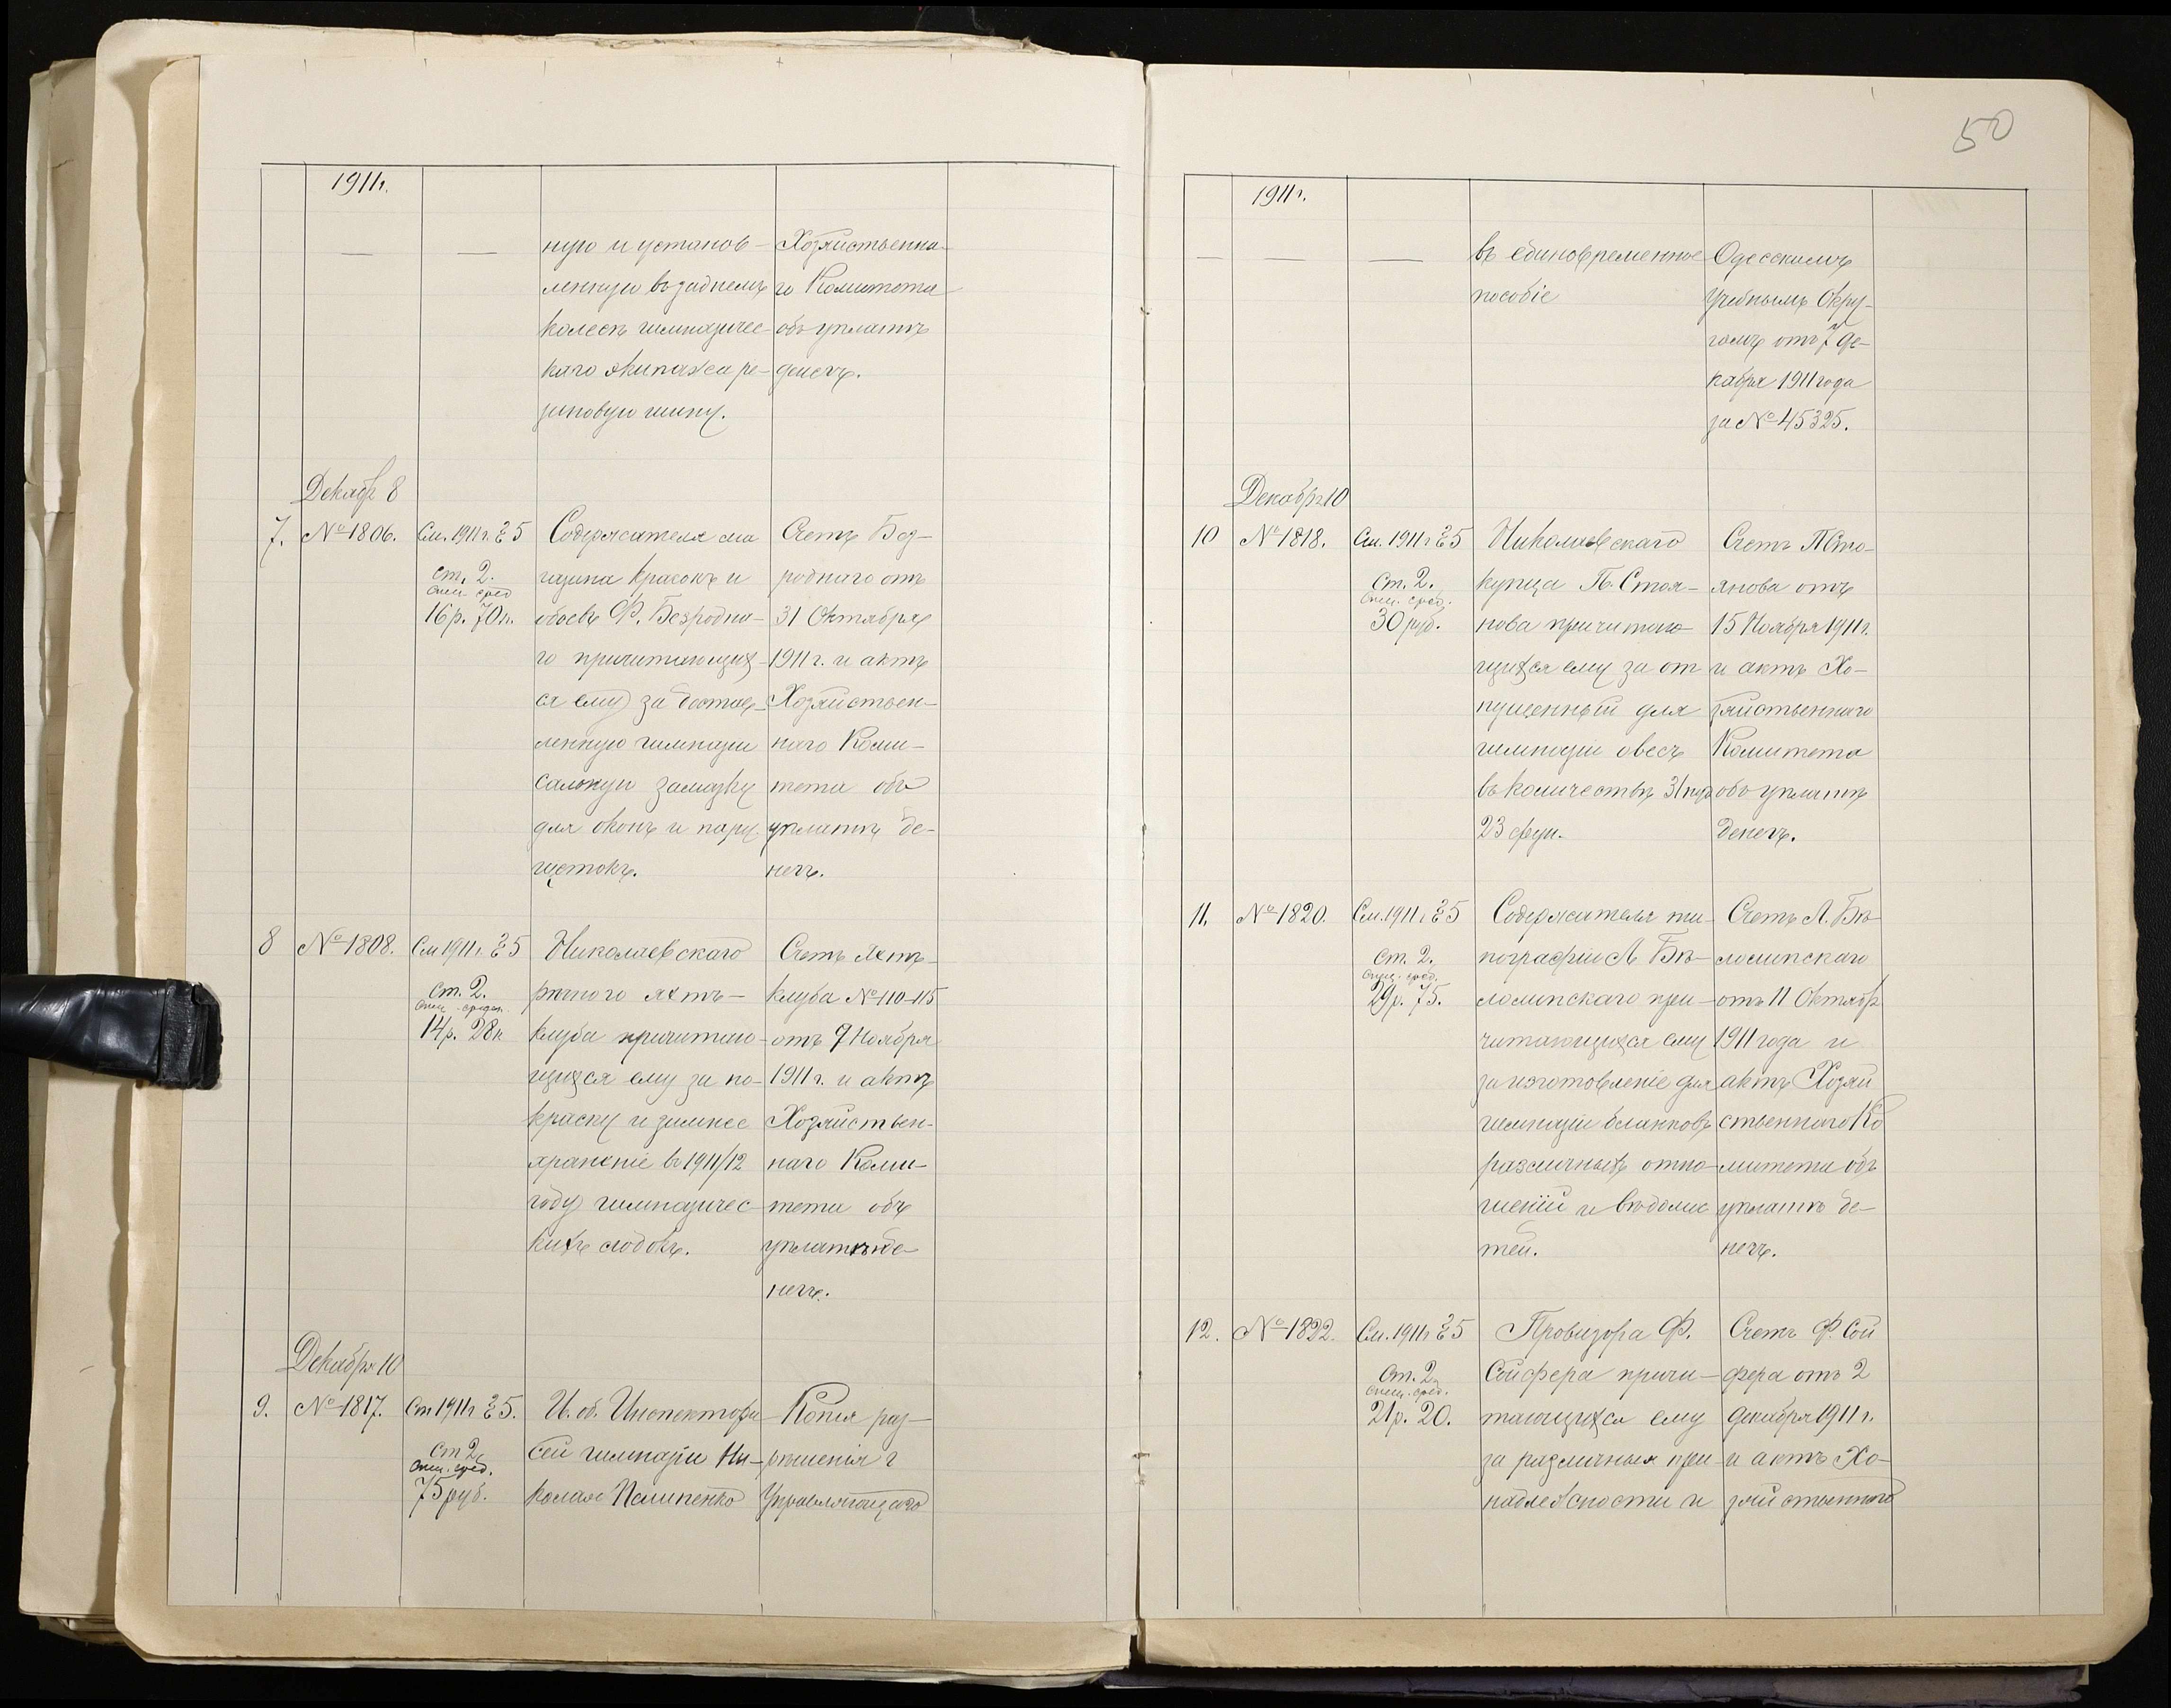 50
1911г.
ную и установ-
ленную въ заднемъ
колесѣ гимназичес-
каго экипажа ре-
зиновую шину.
Хозяйственна-
го Комитета
объ уплатѣ
денегъ.
Декабр 8
7.
№ 1806.
См. 1911 г. § 5
ст. 2.
Спец. сред
16 р. 70 к.
Содержателя ма
газина красокъ и
обоевъ Ф. Безродна-
го причитающих-
ся ему за достав-
ленную гимназіи
сальную замазку
для оконъ и пару
щетокъ.
Счетъ Без-
роднаго отъ
31 Октября
1911 г. и актъ
Хозяйствен-
наго Коми-
тета объ
уплатѣ де-
негъ.
8
№ 1808.
См 1911 г. § 5
ст. 2.
Спец. средст.
14 р. 28 к
Николаевскаго
рѣчного яхтъ-
клуба причитаю-
щихся ему за по-
краску и зимнее
храненіе въ 1911/12
году гимназичес-
кихъ судовъ.
Счетъ Яхтъ-
клуба № 110-115
отъ 7 Ноября
1911 г. и актъ
Хозяйствен-
наго Коми-
тета объ
уплатѣ де-
негъ.
Декабря 10
9.
№ 1817.
См 1911 г § 5.
ст 2
Спец. сред.
75 руб.
И. об. Инспектора
сей гимназіи Ни-
колая Пилипенко
Копія раз-
рѣшенія г
Управляющаго
1911 г.
въ единовременное
пособіе
Одесскимъ
Учебнымъ Окру-
гомъ отъ 7 де-
кабря 1911 года
за № 45325.
Декабря 10
10
№ 1818.
См. 1911 г § 5
ст. 2.
Спец. сред.
30 руб.
Николаевскаго
купца П. Стоя-
нова причитаю
щихся ему за от
пущенный для
гимназіи овесъ
въ количествѣ 31 пуд
23 фун.
Счетъ П Сто-
янова отъ
15 Ноября 1911 г.
и актъ Хо-
зяйственнаго
Комитета
объ уплатѣ
денегъ.
11.
№ 1820.
См. 1911 г § 5
ст. 2.
Спец. сред.
29 р. 75.
Содержателя ти-
пографіи Л Бѣ-
лолипскаго при-
читающихся ему
за изготовленіе для
гимназіи бланковъ
различныхъ отно-
шеній и вѣдомос
тей.
Счетъ Л. Бѣ-
лолипскаго
отъ 11 Октябр
1911 года и
актъ Хозяй
ственнаго Ко
митета объ
уплатѣ де-
негъ.
12.
№ 1822.
См. 1911 г § 5
ст. 2
Спец. сред.
21 р. 20.
Провизора Ф.
Сойфера причи-
тающихся ему
за различныя при-
надлежности и
Счетъ Ф. Сой
фера отъ 2
декабря 1911 г.
и актъ Хо-
зяйственнаго